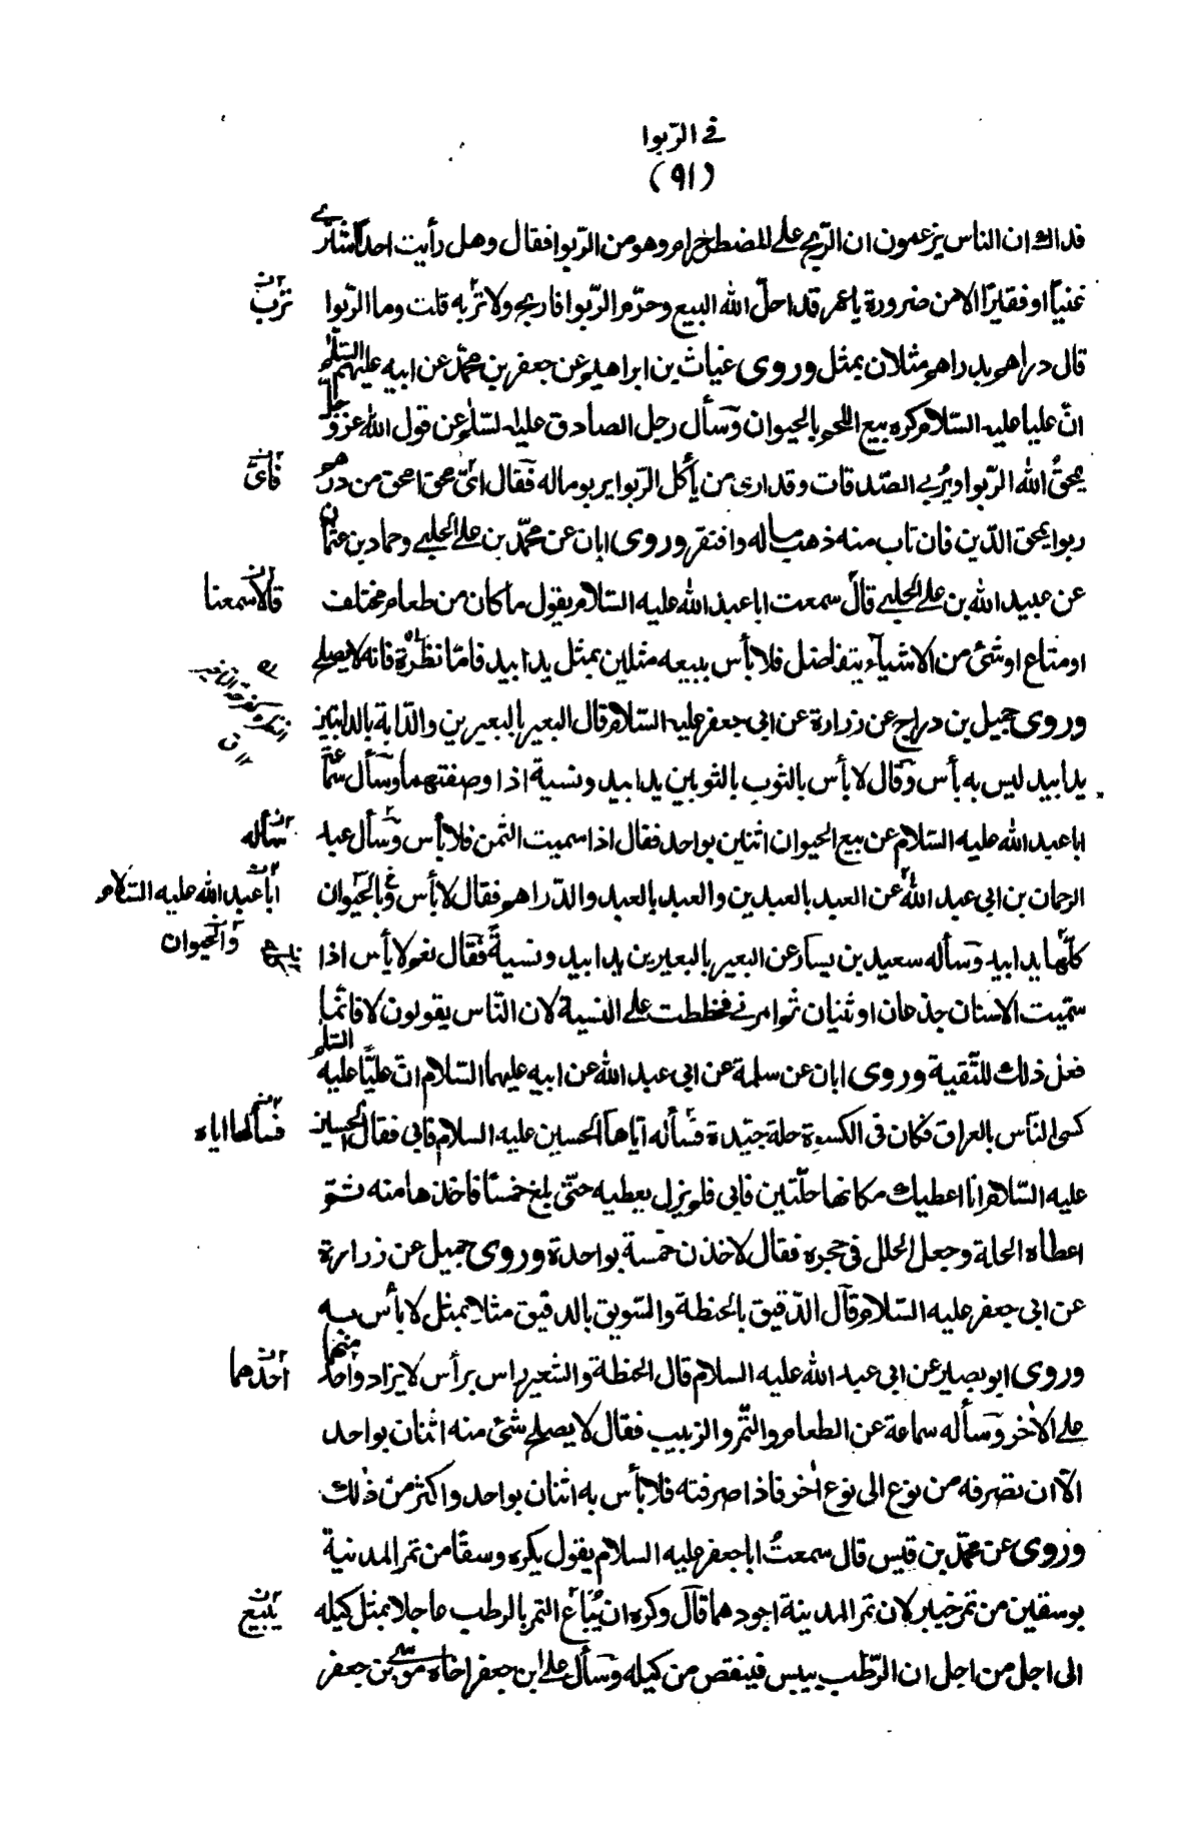 في الرّبوا
(٩١)
فداك ان الناس يزعمون ان الرّبح على المضطر حرام وهو من الرّبوا فقال وهل رأيت احدًا اشترى
غنيّا او فقيرًا الا من ضرورة يا عمر قد احلّ الله البيع وحرّم الرّبوا فاربح ولا تربه قلت وما الرّبوا
تربّ
قال دراهم بدراهم مثلان بمثل وروى غياث بن ابراهيم عن جعفر بن محمّد عن ابيه عليهم السّلم
انّ عليا عليه السّلام كره بيع اللحم بالحيوان وسأل رجل الصادق عليه السّلم عن قول الله عزّ وجلّ
يمحقُ الله الرّبوا ويُربي الصّدقات وقد ارى من يأكل الرّبوا يربو ماله فقال اىّ محق امحق من درهم
فاىّ
ربوا يمحق الدّين فان تاب منه ذهب ماله وافتقر وروى ابان عن محمّد بن على الحلبي وحماد بن عثمان
عن عبيد الله بن على الحلبي قال سمعت ابا عبد الله عليه السّلام يقول ما كان من طعام مختلف
قالا سمعنا
او متاع او شئ من الاشيآء يتفاضل فلا بأس ببيعه مثلين بمثل يدا بيد فامّا نظرة فانه لا يصلح
وروى جميل بن دراج عن زرارة عن ابى جعفر عليه السّلام قال البعير بالبعيرين والدّابة بالدابتين
يدا بيد ليس به بأس وقال لا بأس بالثوب بالثوبين يدا بيد ونسية اذا وصفتهما وسأل سماعة
ابا عبد الله عليه السّلام عن بيع الحيوان اثنين بواحد فقال اذا سميت الثمن فلا بأس وسأل عبد
سأله
الرحمان بن ابى عبد الله عن العبد بالعبدين والعبد بالعبد والدّراهم فقال لا بأس وبالحيوان
ابا عبد الله عليه السّلام
كلّها يدا بيد وسأله سعيد بن يسار عن البعير بالبعيرين يدا بيد ونسيةً فقال نعم لا بأس اذا
والحيوان
سمّيت الاسنان جذعان او ثنيان ثم امرنى فخططت على النسية لان النّاس يقولون لا فانّما
فعل ذلك للتّقية وروى ابان عن سلمة عن ابى عبد الله عن ابيه عليهما السّلام انّ عليًّا عليه السّلم
كسى النّاس بالعراق فكان فى الكسوة حلة جيّدة فسأله ايّاها الحسين عليه السلام فابى فقال الحسين
فسألها اياه
عليه السّلام انا اعطيك مكانها حلّتين فابى فلم يزل يعطيه حتّى بلغ خمسًا فاخذها منه ثمّ
اعطاه الحلة وجعل الحلل فى حجره فقال لاخذن خمسة بواحدة وروى جميل عن زرارة
عن ابى جعفر عليه السّلام قال الدّقيق بالحنطة والسّويق بالدقيق مثلا بمثل لا بأس به
وروى ابو بصير عن ابى عبد الله عليه السلام قال الحنطة والشعير راس برأس لا يزاد واحد منهما
احدهما
على الاخر وسأله سماعة عن الطعام والتّمر والزبيب فقال لا يصلح شئ منه اثنان بواحد
الّا ان تصرفه من نوع الى نوع اخر فاذا صرفته فلا بأس به اثنان بواحد واكثر من ذلك
وروى عن محمّد بن قيس قال سمعتُ ابا جعفر عليه السلام يقول يكره وسقًا من تمر المدينة
بوسقين من تمر خيبر لان تمر المدينة اجودهما قال وكره ان يُبَاع التمر بالرطب عاجلا بمثل كيله
يبيع
الى اجل من اجل ان الرّطب ييبس فينقص من كيله وسأل على ابن جعفر اخاه موسى بن جعفر